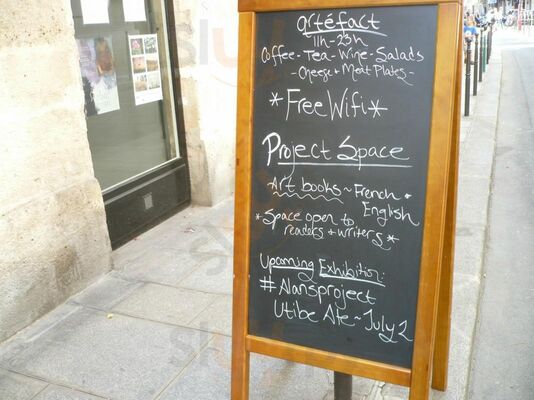 artéfact
11h-23h
Coffee - Tea - Wine - Salads
- Cheese + Meat Plates -
*Free Wifi*
Project Space
Art books ~ French +
English
*Space open to
readers + writers*
Upcoming Exhibition:
#Alansproject
Utibe Ate ~ July 2